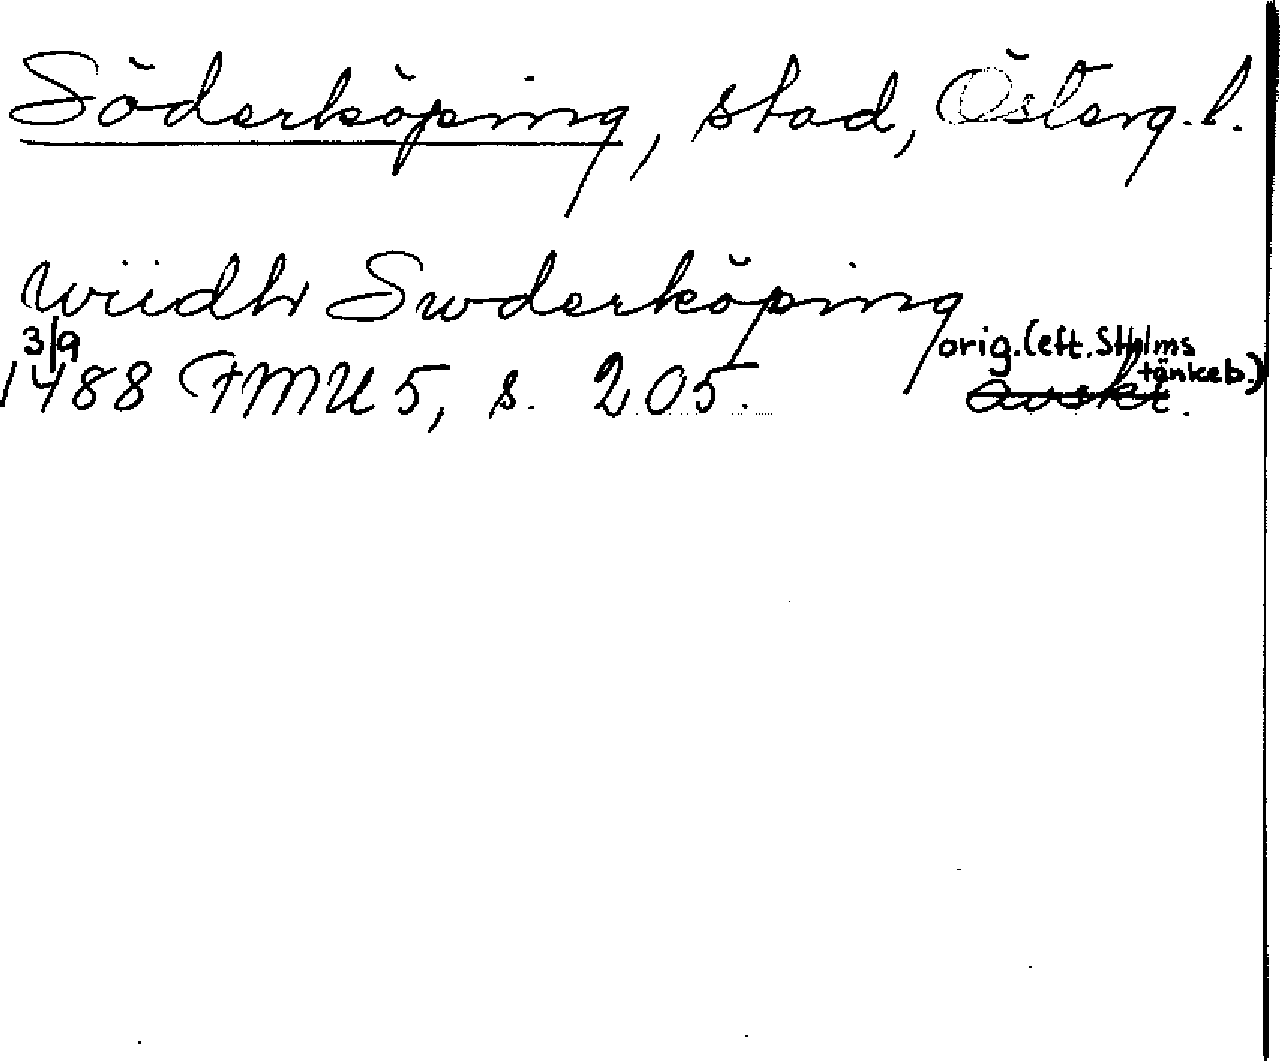 Söderköping, stad, Österg. l.
wiidh Swderköping
3/9 orig. (eft. Sthlms
1488 FMU 5, s. 205. tänkeb.)
avskr.